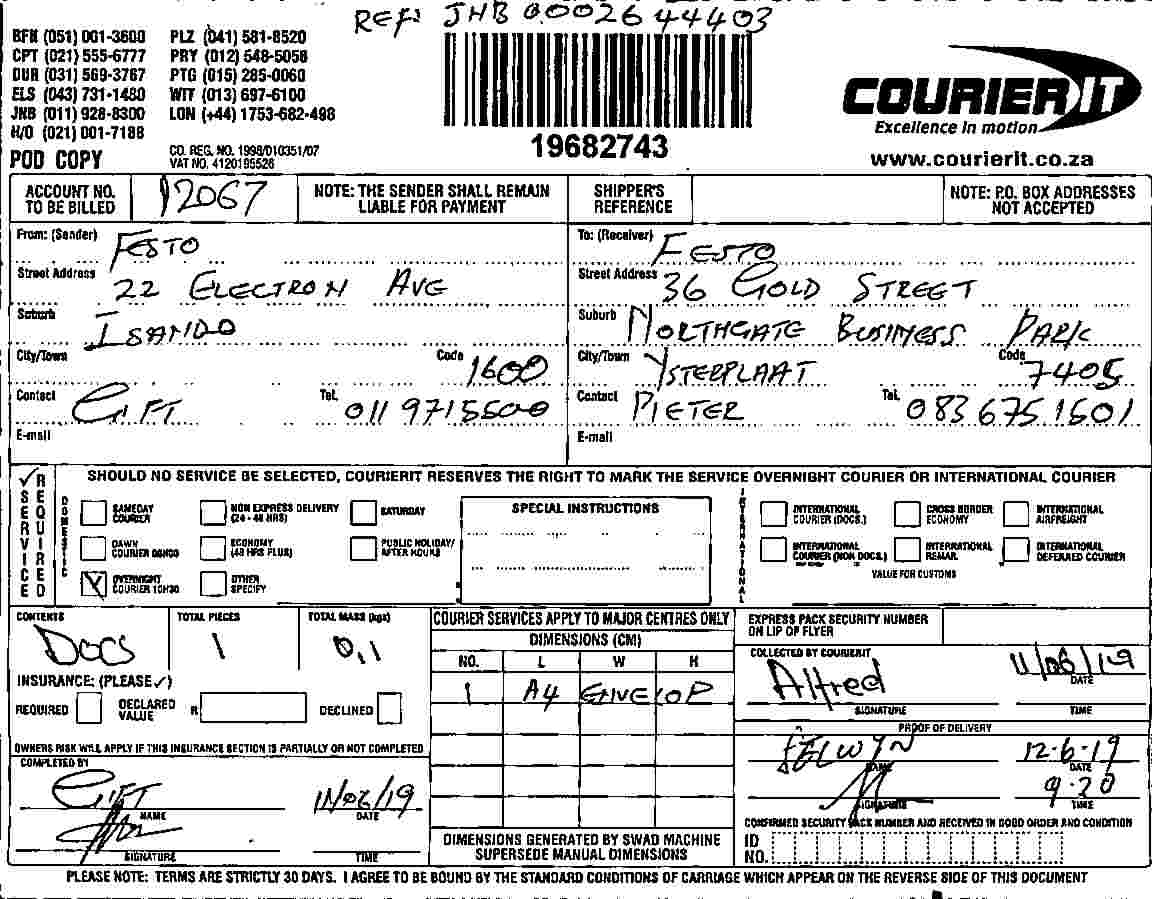 REF: JHB 0002644403
BFN (051) 001-3600 PLZ (041) 581-8520
CPT (021) 555-6777 PRY (012) 548-5058
DUR (031) 569-3767 PTG (015) 285-0060
ELS (043) 731-1480 WIT (013) 697-6100
JNB (011) 928-8300 LON (+44) 1753-682-498
H/O (021) 001-7188
POD COPY
CO. REG. NO. 1998/010351/07
VAT NO. 4120195526
19682743
COURIER IT
Excellence in motion
www.courierit.co.za
ACCOUNT NO. TO BE BILLED 12067
NOTE: THE SENDER SHALL REMAIN LIABLE FOR PAYMENT
SHIPPER'S REFERENCE
NOTE: P.O. BOX ADDRESSES NOT ACCEPTED
From: (Sender) FESTO
Street Address 22 ELECTRON AVE
Suburb ISANDO
City/Town Code 1600
Contact GIFT Tel. 011 9715500
E-mail
To: (Receiver) FESTO
Street Address 36 GOLD STREET
Suburb NORTHGATE BUSINESS PARK
City/Town YSTERPLAAT Code 7405
Contact PIETER Tel. 083 675 1501
E-mail
✓ SERVICE REQUIRED
SHOULD NO SERVICE BE SELECTED, COURIERIT RESERVES THE RIGHT TO MARK THE SERVICE OVERNIGHT COURIER OR INTERNATIONAL COURIER
DOMESTIC
SAMEDAY COURIER
NON EXPRESS DELIVERY (24 - 48 HRS)
SATURDAY
DAWN COURIER 08H00
ECONOMY (48 HRS PLUS)
PUBLIC HOLIDAY/ AFTER HOURS
OVERNIGHT COURIER 10H30
OTHER SPECIFY
SPECIAL INSTRUCTIONS
INTERNATIONAL
INTERNATIONAL COURIER (DOCS.)
CROSS BORDER ECONOMY
INTERNATIONAL AIRFREIGHT
INTERNATIONAL COURIER (NON DOCS.)
INTERNATIONAL REMAIL
INTERNATIONAL DEFERRED COURIER
VALUE FOR CUSTOMS
CONTENTS DOCS
TOTAL PIECES 1
TOTAL MASS (kgs) 0,1
INSURANCE: (PLEASE ✓)
REQUIRED DECLARED VALUE R DECLINED
OWNERS RISK WILL APPLY IF THIS INSURANCE SECTION IS PARTIALLY OR NOT COMPLETED
COMPLETED BY
GIFT 11/06/19
NAME DATE
SIGNATURE TIME
COURIER SERVICES APPLY TO MAJOR CENTRES ONLY
DIMENSIONS (CM)
NO. L W H
1 A4 ENVELOP
DIMENSIONS GENERATED BY SWAD MACHINE SUPERSEDE MANUAL DIMENSIONS
EXPRESS PACK SECURITY NUMBER ON LIP OF FLYER
COLLECTED BY COURIERIT
Alfred 11/06/19
DATE
SIGNATURE TIME
PROOF OF DELIVERY
SELWYN 12-6-19
NAME DATE
9.20
SIGNATURE TIME
CONFIRMED SECURITY PACK NUMBER AND RECEIVED IN GOOD ORDER AND CONDITION
ID NO.
PLEASE NOTE: TERMS ARE STRICTLY 30 DAYS. I AGREE TO BE BOUND BY THE STANDARD CONDITIONS OF CARRIAGE WHICH APPEAR ON THE REVERSE SIDE OF THIS DOCUMENT